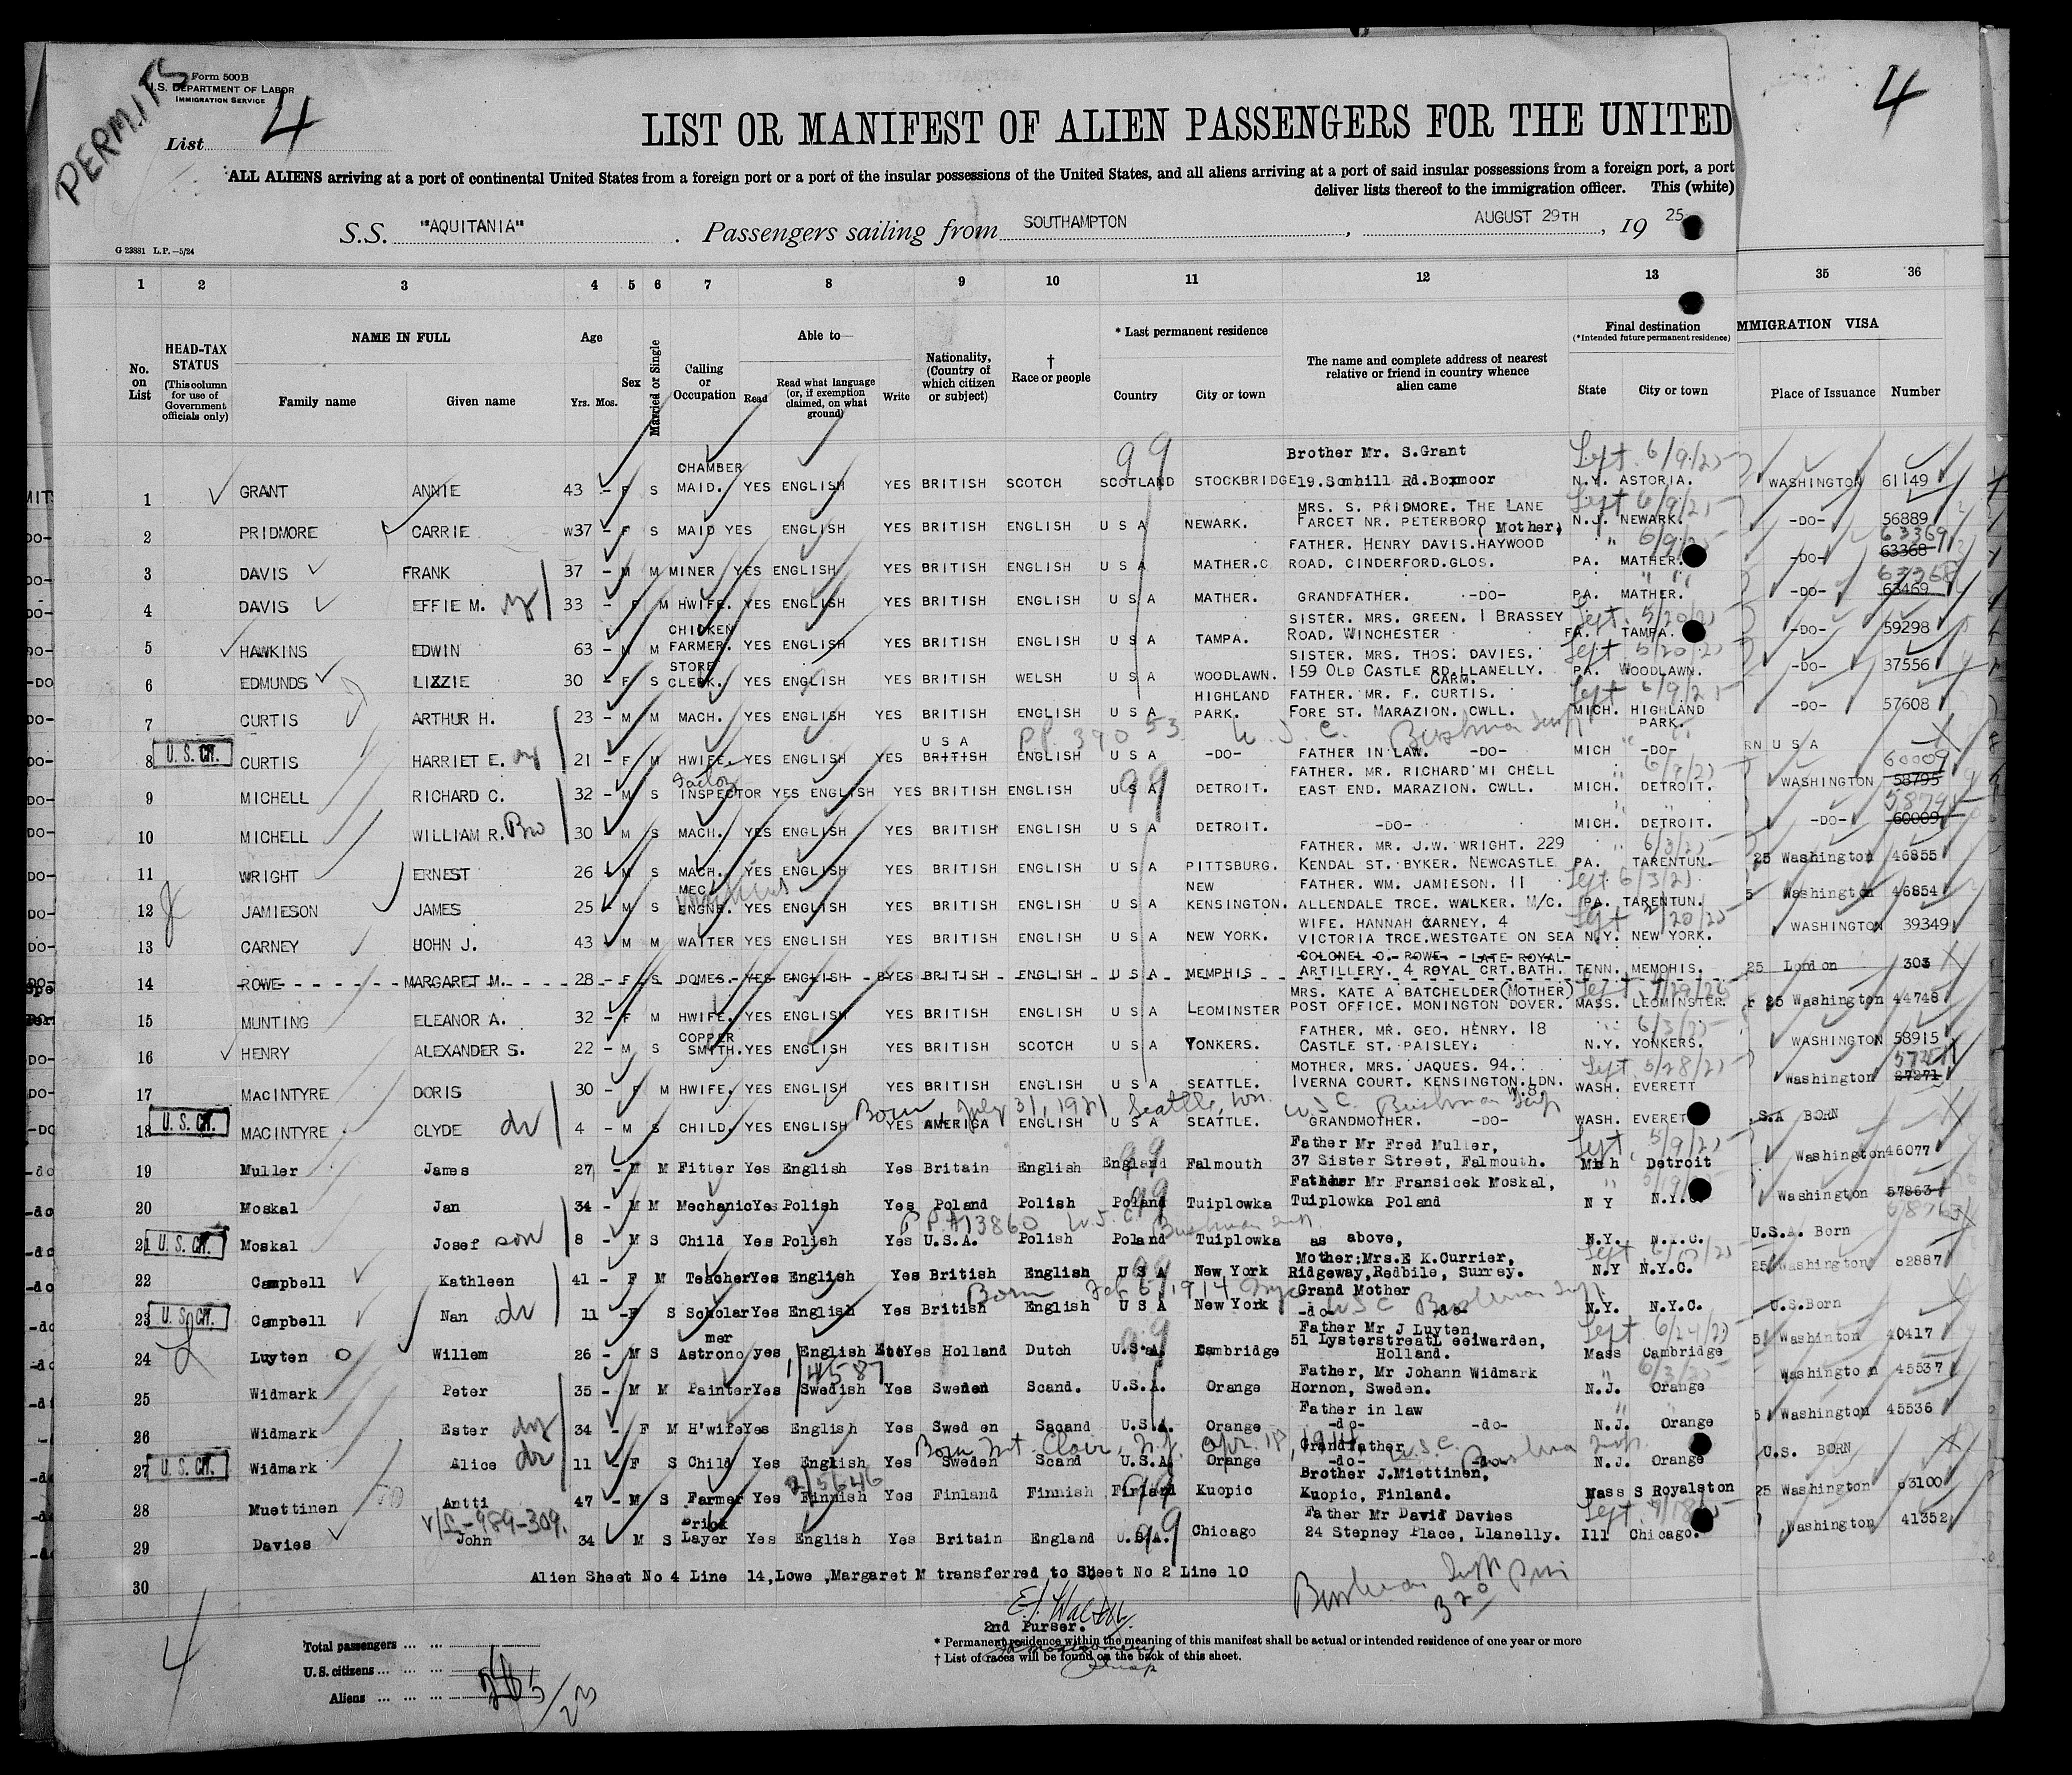 PERMITS
Form 500 B
U.S. DEPARTMENT OF LABOR
IMMIGRATION SERVICE
List 4
4
LIST OR MANIFEST OF ALIEN PASSENGERS FOR THE UNITED
ALL ALIENS arriving at a port of continental United States from a foreign port or a port of the insular possessions of the United States, and all aliens arriving at a port of said insular possessions from a foreign port, a port
deliver lists thereof to the immigration officer. This (white)
S.S. "AQUITANIA" . Passengers sailing from SOUTHAMPTON , AUGUST 29TH , 19 25
G 23881 L.P.—5/24
1 2 3 4 5 6 7 8 9 10 11 12 13 35 36
No. on List
HEAD-TAX STATUS (This column for use of Government officials only)
NAME IN FULL Family name Given name
Age Yrs. Mos.
Sex
Married or Single
Calling or Occupation
Able to— Read Read what language (or, if exemption claimed, on what ground) Write
Nationality, (Country of which citizen or subject)
† Race or people
* Last permanent residence Country City or town
The name and complete address of nearest relative or friend in country whence alien came
Final destination (*Intended future permanent residence) State City or town
MMIGRATION VISA Place of Issuance Number
1 GRANT ANNIE 43 - F S CHAMBER MAID. YES ENGLISH YES BRITISH SCOTCH SCOTLAND STOCKBRIDGE Brother Mr. S.Grant 19. Somhill Rd. Boxmoor N.Y. ASTORIA. WASHINGTON 61149
2 PRIDMORE CARRIE W37 - F S MAID YES ENGLISH YES BRITISH ENGLISH U S A NEWARK. MRS. S. PRIDMORE. THE LANE FARCET NR. PETERBORO (Mother) N.J. NEWARK. -DO- 56889
3 DAVIS FRANK 37 - M M MINER YES ENGLISH YES BRITISH ENGLISH U S A MATHER.C FATHER. HENRY DAVIS.HAYWOOD ROAD. CINDERFORD.GLOS. PA. MATHER. -DO- 63368 63369
4 DAVIS EFFIE M. 33 - F M HWIFE. YES ENGLISH YES BRITISH ENGLISH U S A MATHER. GRANDFATHER. -DO- PA. MATHER. -DO- 63469 63368
5 HAWKINS EDWIN 63 - M M CHICKEN FARMER. YES ENGLISH YES BRITISH ENGLISH U S A TAMPA. SISTER. MRS. GREEN. 1 BRASSEY ROAD. WINCHESTER FA. TAMPA. -DO- 59298
6 EDMUNDS LIZZIE 30 - F S STORE CLERK. YES ENGLISH YES BRITISH WELSH U S A WOODLAWN. SISTER. MRS. THOS. DAVIES. 159 OLD CASTLE RD.LLANELLY. CARM. PA. WOODLAWN. -DO- 37556
7 CURTIS ARTHUR H. 23 - M M MACH. YES ENGLISH YES BRITISH ENGLISH U S A HIGHLAND PARK. FATHER. MR. F. CURTIS. FORE ST. MARAZION. CWLL. MICH. HIGHLAND PARK. -DO- 57608
8 U.S. CIT. CURTIS HARRIET E. 21 - F M HWIFE. YES ENGLISH YES U S A BRITISH ENGLISH U S A -DO- FATHER IN LAW. -DO- MICH -DO- RN U S A
9 MICHELL RICHARD C. 32 - M S INSPECTOR YES ENGLISH YES BRITISH ENGLISH U S A DETROIT. FATHER. MR. RICHARD MI CHELL EAST END. MARAZION. CWLL. MICH. DETROIT. WASHINGTON 58795 60009
10 MICHELL WILLIAM R. Bro 30 - M S MACH. YES ENGLISH YES BRITISH ENGLISH U S A DETROIT. -DO- MICH. DETROIT. -DO- 60009 58795
11 WRIGHT ERNEST 26 - M S MACH. YES ENGLISH YES BRITISH ENGLISH U S A PITTSBURG. FATHER. MR. J.W. WRIGHT. 229 KENDAL ST. BYKER. NEWCASTLE PA. TARENTUN. 25 Washington 46855
12 JAMIESON JAMES 25 - M S MEC. ENGNR. YES ENGLISH YES BRITISH ENGLISH U S A NEW KENSINGTON. FATHER. WM. JAMIESON. 11 ALLENDALE TRCE. WALKER. M/C. PA. TARENTUN. 5 Washington 46854
13 CARNEY JOHN J. 43 - M M WAITER YES ENGLISH YES BRITISH ENGLISH U S A NEW YORK. WIFE. HANNAH CARNEY. 4 VICTORIA TRCE.WESTGATE ON SEA N.Y. NEW YORK. WASHINGTON 39349
14 ROWE MARGARET M. 28 - F S DOMES. YES ENGLISH BYES BRITISH ENGLISH U S A MEMPHIS COLONEL O. ROWE. LATE ROYAL ARTILLERY. 4 ROYAL CRT.BATH. TENN. MEMOHIS. 25 London 303
15 MUNTING ELEANOR A. 32 - F M HWIFE. YES ENGLISH YES BRITISH ENGLISH U S A LEOMINSTER MRS. KATE A BATCHELDER(MOTHER) POST OFFICE. MONINGTON DOVER. MASS. LEOMINSTER. r 25 Washington 44748
16 HENRY ALEXANDER S. 22 - M S COPPER SMITH. YES ENGLISH YES BRITISH SCOTCH U S A YONKERS. FATHER. MR. GEO. HENRY. 18 CASTLE ST. PAISLEY. N.Y. YONKERS. WASHINGTON 58915
17 MACINTYRE DORIS 30 - F M HWIFE. YES ENGLISH YES BRITISH ENGLISH U S A SEATTLE. MOTHER. MRS. JAQUES. 94. IVERNA COURT. KENSINGTON.LDN. W.8. WASH. EVERETT Washington 27271
18 U.S. CIT. MACINTYRE CLYDE 4 - M S CHILD. YES ENGLISH YES AMERICA ENGLISH U S A SEATTLE. GRANDMOTHER. -DO- WASH. EVERET .S.A BORN
Born July 31, 1921 Seattle, Wn.
19 Muller James 27 - M M Fitter Yes English Yes Britain English England Falmouth Father Mr Fred Muller, 37 Sister Street, Falmouth. Mich Detroit Washington 46077
20 Moskal Jan 34 - M M Mechanic Yes Polish Yes Poland Polish Poland Tuiplowka Father Mr Fransicek Moskal, Tuiplowka Poland N Y N.Y. Washington 57863
21 U.S. CIT. Moskal Josef son 8 - M S Child Yes Polish Yes U.S.A. Polish Poland Tuiplowka as above, N.Y. N.Y.C. U.S.A. Born
22 Campbell Kathleen 41 - F M Teacher Yes English Yes British English U S A New York Mother;Mrs.E K.Currier, Ridgeway,Redbile, Surrey. N.Y N.Y.C. 25 Washington 62887
23 U.S. CIT. Campbell Nan 11 - F S Scholar Yes English Yes British English U S A New York Grand Mother -do- -do- N.Y. N.Y.C. U.S.Born
24 Luyten Willem 26 - M S Astrono mer yes English Yes Holland Dutch U.S.A. Cambridge Father Mr J Luyten, 51 Lysterstreat Leeiwarden, Holland. Mass Cambridge 5 Washinton 40417
25 Widmark Peter 35 - M M Painter Yes Swedish Yes Sweden Scand. U.S.A. Orange Father, Mr Johan Widmark Hornon, Sweden. N.J. Orange Washington 45537
26 Widmark Ester 34 - F M H'wife Yes English Yes Swed en Sacand U.S.A. Orange Father in law -do- -do- N.J. Orange 5 Washington 45536
27 U.S. CIT. Widmark Alice 11 - F S Child Yes English Yes Sweden Scand U.S.A. Orange Grandfather -do- -do- N.J. Orange U.S. BORN
28 Muettinen Antti 47 - M S Farmer Yes Finnish Yes Finland Finnish Finland Kuopic Brother J.Miettinen, Kuopic, Finland. Mass S Royalston 25 Washington 63100
V/L-989-309.
29 Davies John 34 M S Brick Layer Yes English Yes Britain England U.S.A. Chicago Father Mr David Davies 24 Stepney Place, Llanelly. Ill Chicago. Washington 41352
30 Alien Sheet No 4 Line 14,Lowe ,Margaret M transferred to Sheet No 2 Line 10
2nd Purser.
* Permanent residence within the meaning of this manifest shall be actual or intended residence of one year or more
† List of races will be found on the back of this sheet.
4
Total passengers
U.S. citizens
Aliens